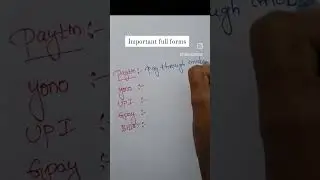 Important full forms
Paytm :- Pay through mobi
yono :-
UPI :-
Gpay :-